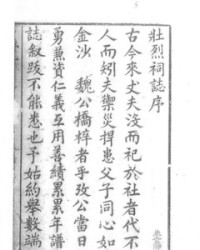 壯烈祠誌序
古今來丈夫沒而祀於社者代不
人而矧夫禦災捍患父子同心如
金沙 魏公橋梓者乎攷公當日
勇兼資仁義互用善績累累年譜
誌叙跋不能悉也予始約舉數端